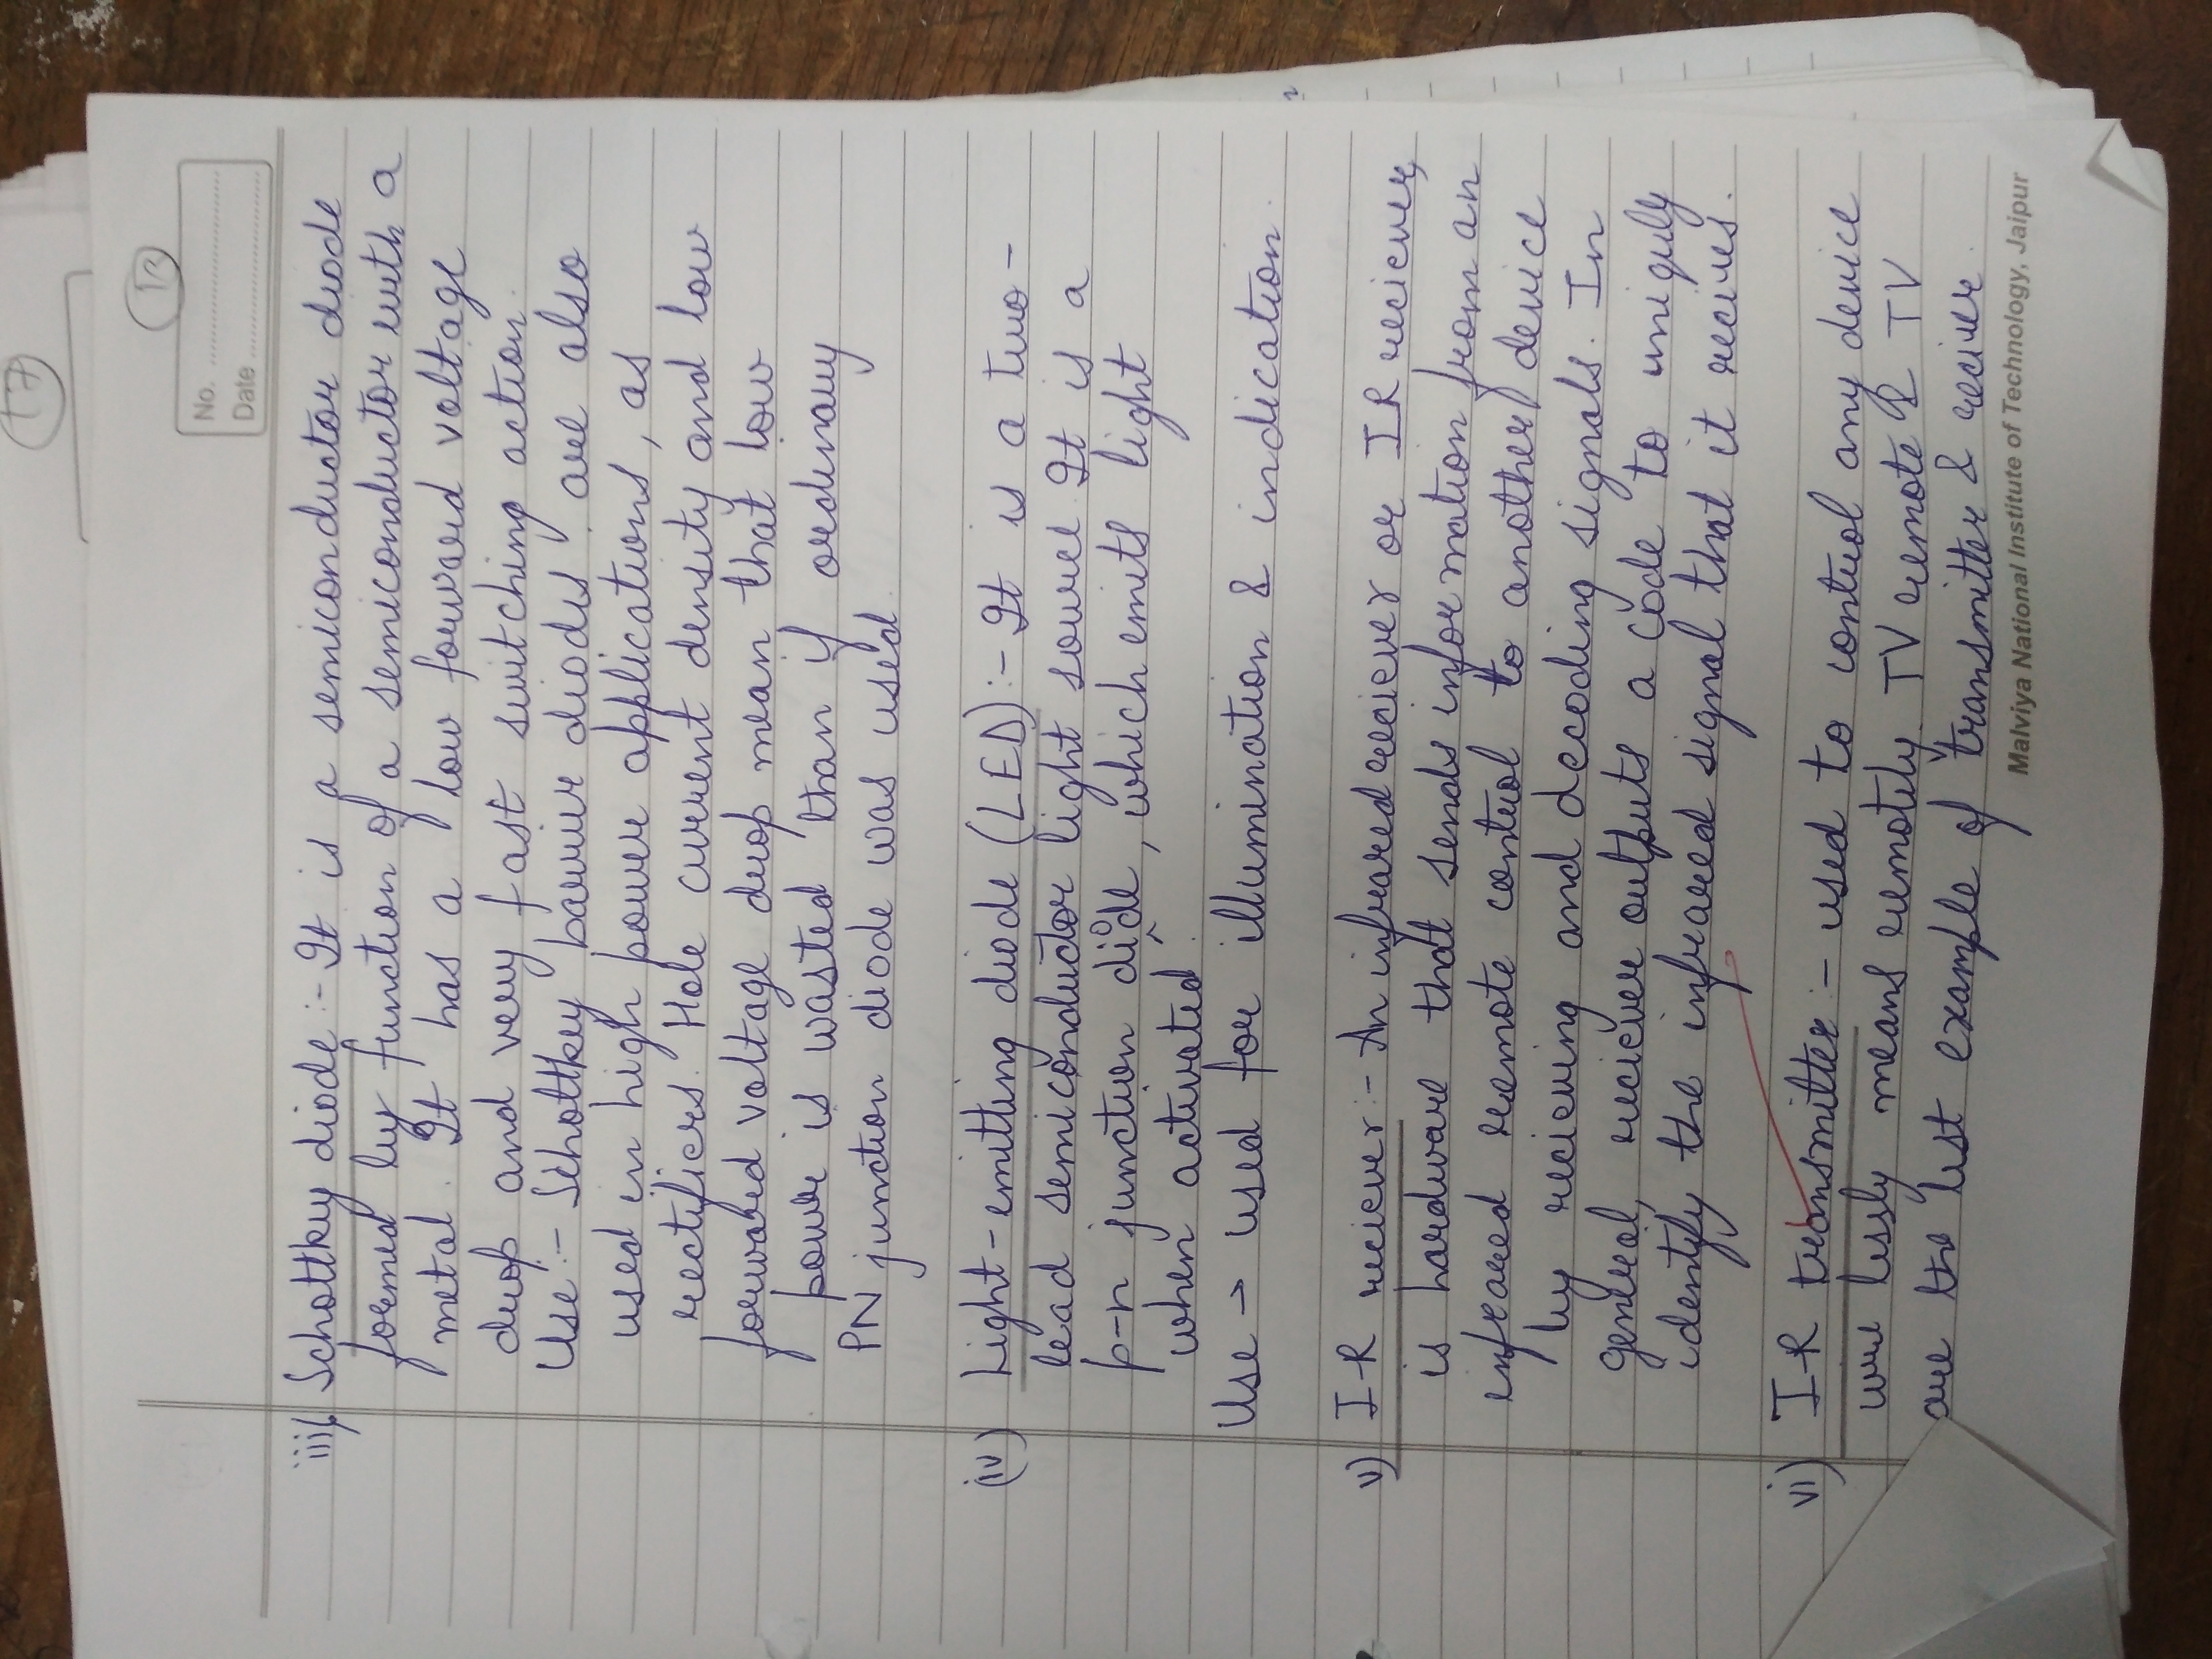 17
13
No. ........................
Date ........................
iii) Schottky diode :- It is a semiconductor diode
formed by function of a semiconductor with a
metal. It has a low forward voltage
drop and very fast switching action.
Use :- Schottkey barrier diodes are also
used in high power applications, as
rectifiers. Hole current density and low
forward voltage drop mean that low
power is wasted than if ordinary
PN junction diode was used.
(iv) Light-emitting diode (LED) :- It is a two-
lead semiconductor light source It is a
p-n junction diode, which emits light
when activated.
Use → used for illumination & indication.
v) I-R reciever :- An infrared reciever or IR reciever,
is hardware that sends information from an
infrared remote control to another device
by recieving and decoding signals. In
general, reciever outputs a code to uniquly
identify the infrared signal that it recives.
vi) I-R transmitter :- used to control any device
wire lessly means remotely. TV remote & TV
are the best example of transmitter & reciver.
Malviya National Institute of Technology, Jaipur